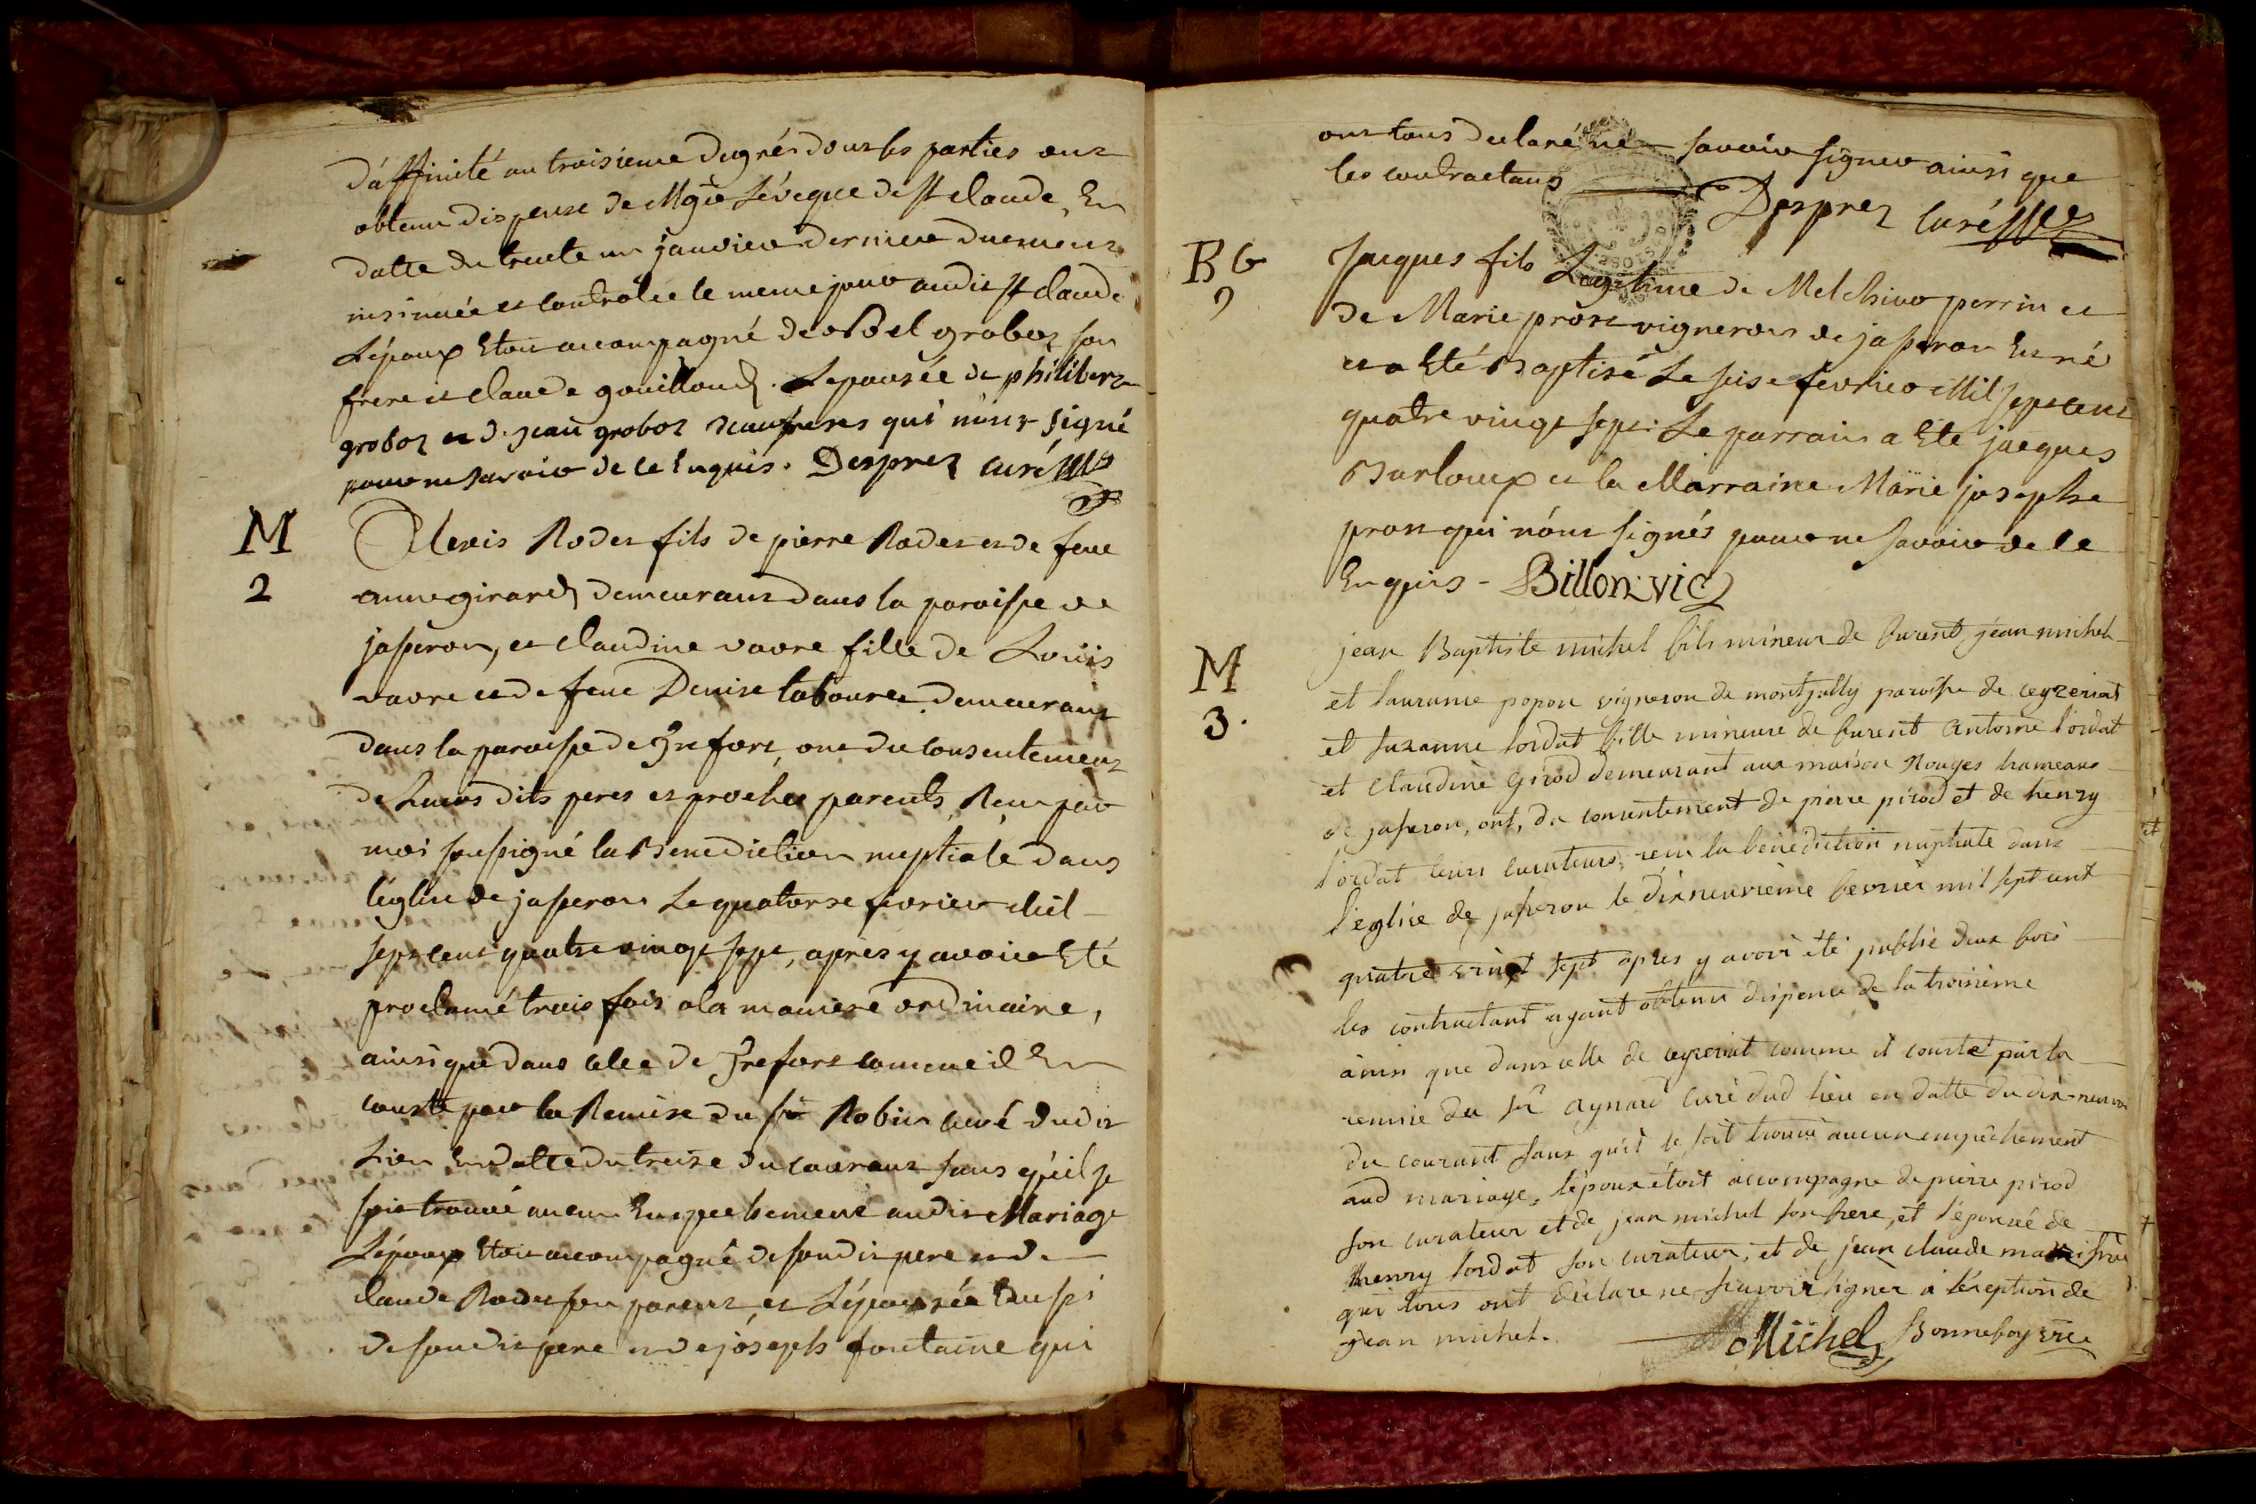 d'affinité au troisieme degrés dont les parties ont
obtenu dispense de Mgr L'évêque de st claude, En
datte du trente un janvier dernier duement
insinuée et controlée le meme jour audit st claude
L'époux Etoit accompagné de grobos son
frere et claude gouilloud. L'epousée de philibert
grobos et d. jean grobos qui n'ont signé
pour ne savoir de ce Enquis. Desprez curé
M
2
Alexis Rodet fils de pierre Rodet et de feue
anne girard demeurant dans la paroisse de
jasseron, et claudine vavre fille de Louis
vavre et de feue Denise tabouret demeurant
dans la paroisse de Trefort, ont du consentement
de Leurs dits peres et proches parents, Reçu par
moi soussigné la Benediction nuptiale dans
l'église de jasseron Le quatorze fevrier Mil
sept cent quatre vingt sept, après y avoir Eté
proclamé trois fois a la maniere ordinaire,
ainsi que dans celle de Trefort comme il En
conste par la Remise du sr Robin curé dudit
Lieu En datte du treize du courant sans qu'il se
soit trouvé aucun Empechement audit Mariage
L'époux Etoit accompagné de sondit pere et de
claude Rodet son parent et L'épousée aussi
de sondit pere et de joseph fontaine qui
ont tous declaré ne savoir signer ainsi que
les contractans
Desprez curé
B G
7
Jacques fils Legitime de Melchior perrin et
de Marie prost vignerons de jasseron Est né
et a Eté Baptisé Le seise fevrier Mil sept cent
quatre vingt sept. Le parrain a Eté jacques
Burloup et la Marraine Marie josephe
prost qui n'ont signés pour ne savoir de ce
Enquis - Billon vic
M
3.
jean Baptiste michel fils mineur de furent jean michel
et laurance popon vigneron de montjully paroisse de ceyzeriat
et suzanne lordat fille mineure de furent antoine lordat
et claudine girod demeurant aux maison Rouges hameaux
de jasseron, ont, du consentement de pierre pirod et de henry
lordat leurs curateurs, reçu la bénédiction nuptiale dans
l'eglise de jasseron le dixneuvieme fevrier mil sept cent
quatre vingt sept apres y avoir été publié deux fois
les contractant ayant obtenu dispence de la troisieme
ainsi que dans celle de ceyzeriat comme il conste par la
remise du sr aynard curé dud lieu en datte du dix-neuv
du courant sans qu'il se soit trouvé aucun empêchement
aud mariage, l'époux étoit accompagné de pierre pirod
son curateur et de jean michel son frere, et l'epousée de
henry lordat son curateur, et de jean claude
qui tous ont déclare ne scavoir signer à l'exeption de
jean michel.
Michel Bonnefoy vic